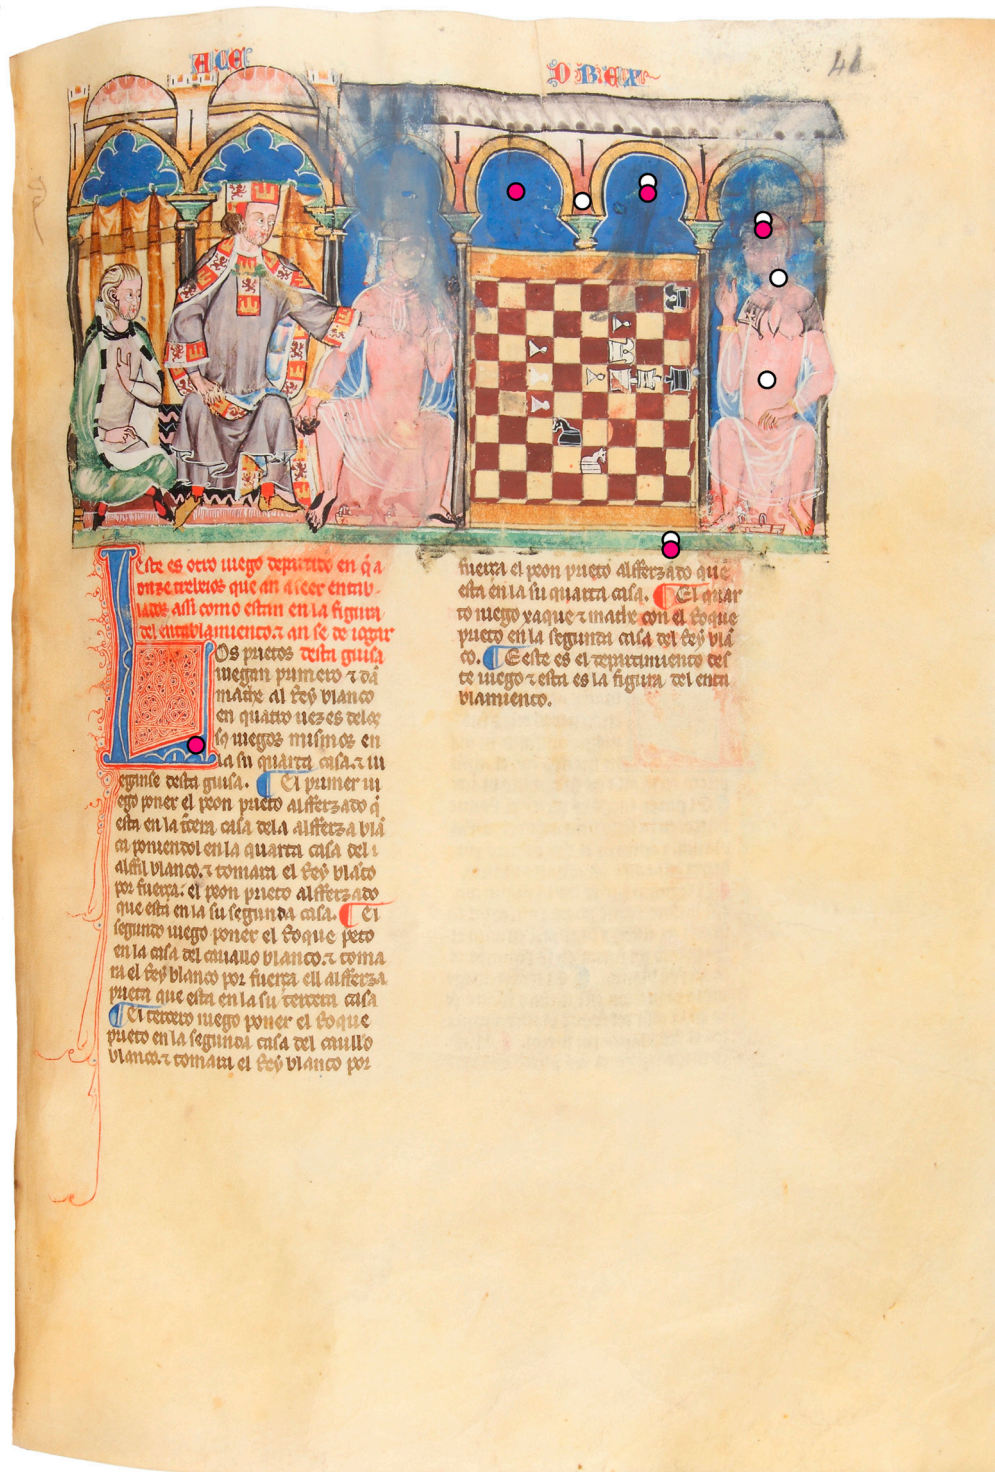 ACE
D BEX
41
Este es otro iuego departido en q̃ a
onze trebeios que an a seer entab-
lados assi como estan en la figura
del entablamiento. ⁊ an se de iogar
desta guisa
Los prietos
iuegan primero ⁊ dã
mathe al Rey blanco
en quatro uezes delos
sos iuegos mismos en
la su quarta casa. ⁊ iu
eganse desta guisa. ¶ El primer iu
ego poner el peon prieto alfferzado q̃
esta en la t̃cera casa dela alfferza blã
ca poniendol en la quarta casa del
alffil blanco. ⁊ tomara el Rey blãco
por fuerça. el peon prieto alfferzado
que esta en la su segunda casa. ¶ El
segundo iuego poner el Roque p̃eto
en la casa del cauallo blanco. ⁊ toma
ra el Rey blanco por fuerça ell alfferza
prieta que esta en la su tercera casa
¶ El tercero iuego poner el Roque
prieto en la segunda casa del cauallo
blanco. ⁊ tomara el Rey blanco por
fuerça el peon prieto alfferzado que
esta en la su quarta casa. ¶ El quar
to iuego xaque ⁊ mathe con el Roque
prieto en la segunda casa del Rey blã
co. ¶ E este es el departimiento des
te iuego ⁊ esta es la figura del enta
blamiento.